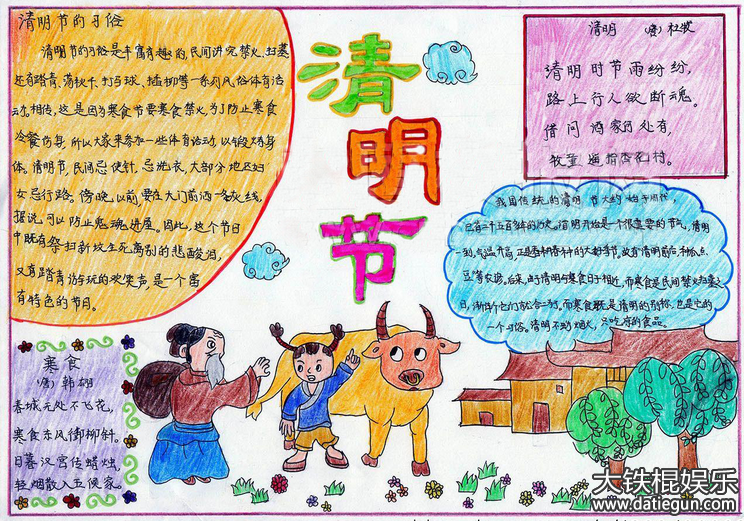 清明节的习俗
清明节的习俗是丰富有趣的,民间讲究禁火、扫墓
还有踏青、荡秋千、打马球、插柳等一系列风俗体育活
动,相传,这是因为寒食节要寒食禁火,为了防止寒食
冷餐伤身,所以大家来参加一些体育活动,以锻炼身
体。清明节,民间忌使针,忌洗衣,大部分地区妇
女忌行路。傍晚以前要在大门前洒一条灰线,
据说,可以防止鬼魂进屋。因此,这个节日
中既有祭扫新坟生死离别的悲酸泪,
又有踏青仿与玩的欢笑声,是一个富
有特色的节日。
清
明
节
清明 (唐) 杜牧
清明时节雨纷纷,
路上行人欲断魂。
借问酒家何处有,
牧童遥指杏花村。
我国传统的清明节大约始于周代,
已有二千五百多年的历史。清明开始是一个很重要的节气,清明
一到,气温升高,正是春耕春种的大好季节,故有"清明前后,种瓜点
豆"等农谚。后来,由于清明与寒食日子相近,而寒食是民间禁火扫墓之
日,渐渐它们就合一了。而寒食既是清明的别称,也是它的
一个习俗。清明不动烟火,只吃凉的食品。
寒食
(唐) 韩翃
春城无处不飞花,
寒食东风御柳斜。
日暮汉宫传蜡烛,
轻烟散入五侯家。
大铁棍娱乐
www.datiegun.com